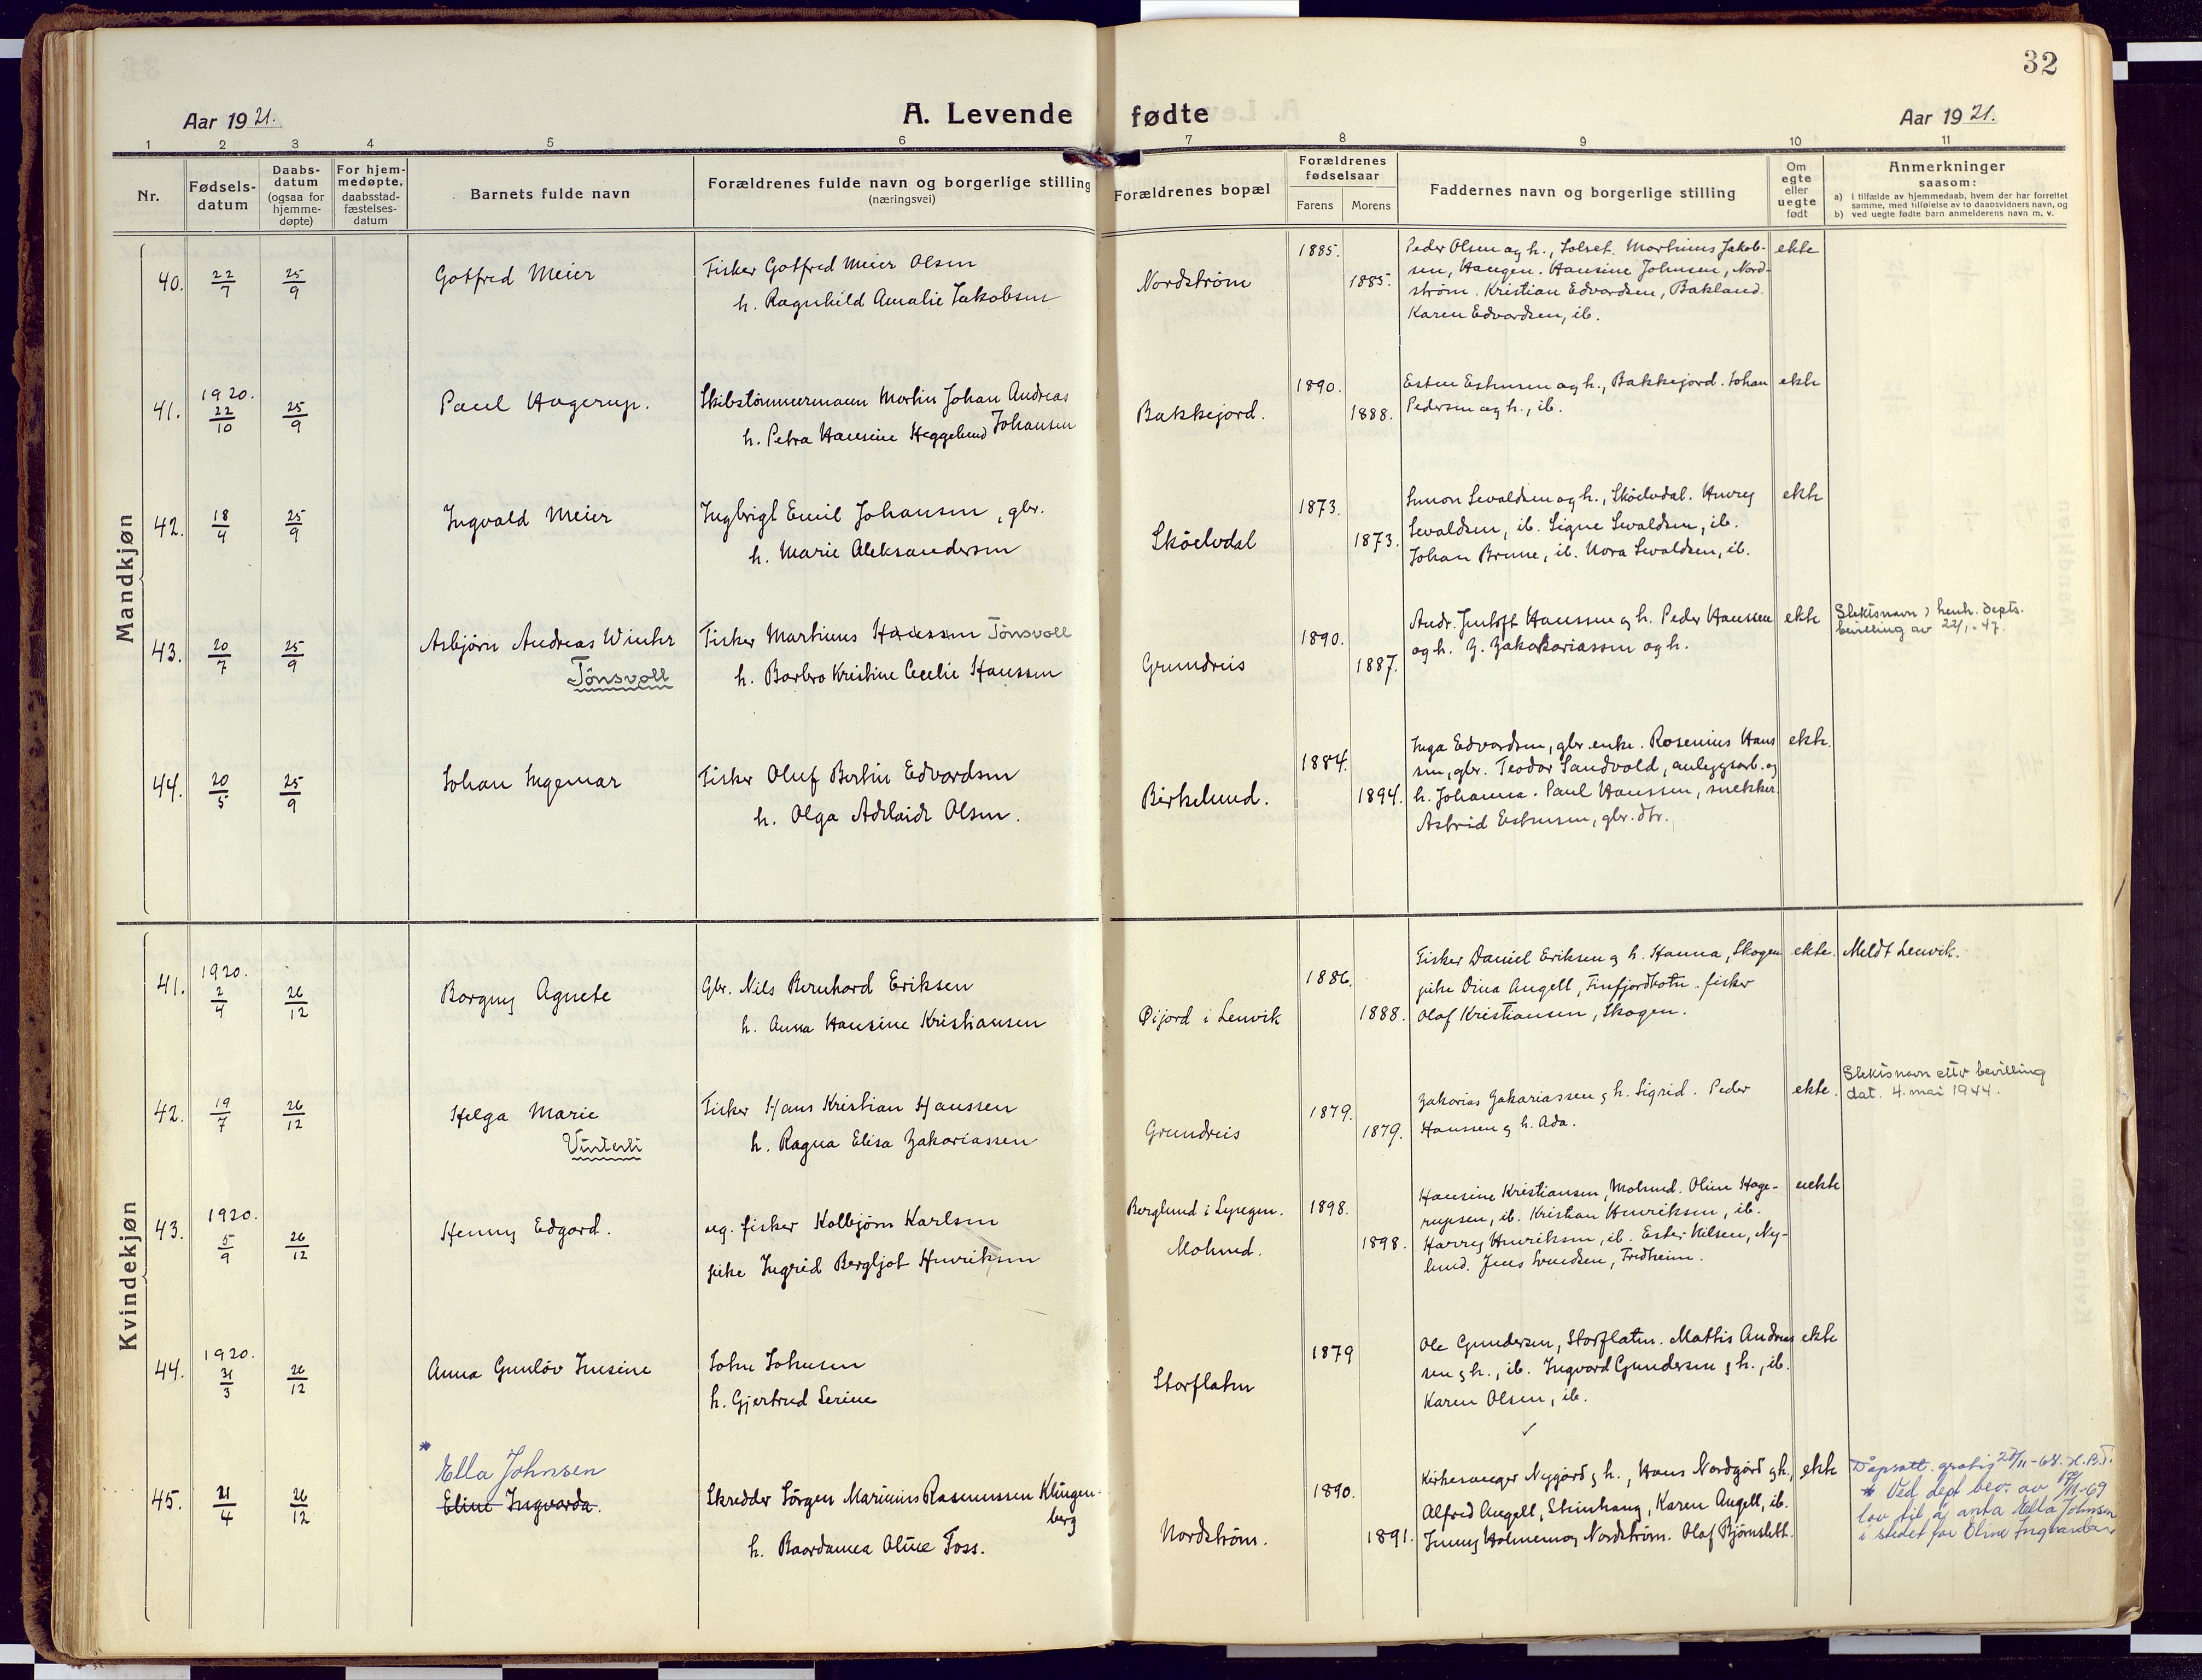 32
Aar 1921.
A. Levende fødte
Aar 1921.
1 2 3 4 5 6 7 8 9 10 11
Nr.
Fødsels-
datum
Daabs-
datum
(ogsaa for
hjemme-
døpte)
For hjem-
medøpte,
daabsstad-
fæstelses-
datum
Barnets fulde navn
Forældrenes fulde navn og borgerlige stilling
(næringsvei)
Forældrenes bopæl
Forældrenes
fødselsaar
Farens Morens
Faddernes navn og borgerlige stilling
Om
egte
eller
uegte
født
Anmerkninger
saasom:
a) i tilfælde av hjemmedaab, hvem der har forrettet
samme, med tilføielse av to daabsvidners navn, og
b) ved uegte fødte barn anmelderens navn m. v.
Mandkjøn
40. 22/7 25/9 Gotfred Meier
Fisker Gotfred Meier Olsen
h. Ragnhild Amalie Jakobsen
Nordstrøm
1885. 1885.
Peder Olsen og h., Solset. Martinus Jakob-
sen, Haugen. Hansine Johnsen, Nord-
strøm. Kristian Edvardsen, Bakland.
Karen Edvardsen, ib.
ekte
41. 1920. 22/10 25/9 Paul Hagerup.
Skibstømmermann Martin Johan Andreas
h. Petra Hansine Heggelund Johansen
Bakkejord.
1890. 1888.
Esten Estensen og h., Bakkejord. Johan
Pedersen og h., ib.
ekte
42. 18/4 25/9 Ingvald Meier
Ingbrigt Emil Johansen, gbr.
h. Marie Aleksandersen
Sköelvdal
1873. 1873.
Simon Sevaldsen og h., Sköelvdal. Henry
Sevaldsen, ib. Signe Sevaldsen, ib.
Johan Brune, ib. Nora Sevaldsen, ib.
ekte
43. 20/7 25/9 Asbjørn Andreas Winther
Tönsvoll
Fisker Martinus Hanssen Tönsvoll
h. Barbro Kristine Cecelie Hanssen
Grundreis
1890. 1887.
Andr. Jentoft Hanssen og h. Peder Hanssen
og h. Z. Zakakariassen og h.
ekte
Slektsnavn i henh. depts.
bevilling av 22/1-47.
44. 20/5 25/9 Johan Ingemar
Fisker Oluf Bertin Edvardsen
h. Olga Adelaide Olsen.
Birkelund.
1884. 1894.
Inga Edvardsen, gbr.enke. Rosenius Hans
sen, gbr. Teodor Sandvold, anleggsarb. og
h. Johanna. Paul Hanssen, snekker.
Astrid Estensen, gbr.dtr.
ekte.
Kvindekjøn
41. 1920. 2/4 26/12 Borgny Agnete
Gbr. Nils Bernhard Eriksen
h. Anna Hansine Kristiansen
Øijord i Lenvik
1886. 1888.
Fisker Daniel Eriksen og h. Hanna, Skogen
pike Dina Angell, Finfjordbotn. fisker
Olaf Kristiansen, Skogen.
ekte.
Meldt Lenvik.
42. 19/7 26/12 Helga Marie
Vinterli
Fisker Hans Kristian Hanssen
h. Ragna Elisa Zakariassen
Grundreis
1879. 1879.
Zakarias Zakariassen og h. Sigrid. Peder
Hanssen og h. Ada.
ekte.
Slektsnavn etter bevilling
dat. 4. mai 1944.
43. 1920. 5/9 26/12 Henny Edgard.
ug. fisker Kolbjørn Karlsen
pike Ingrid Bergljot Henriksen
Berglund i Lyngen.
Molund.
1898. 1898.
Hansine Kristiansen, Molund. Oline Hage-
rupsen, ib. Kristian Henriksen, ib.
Harry Henriksen, ib. Ester Nilsen, Ny-
lund. Jens Svendsen, Fridheim.
uekte
44. 1920. 31/3 26/12 Anna Gunløv Jensine
John Johnsen
h. Gjertrud Serine
Storflaten
1879
Ole Gundersen, Storflaten. Mattis Andreas
sen og h., ib. Ingvard Gundersen og h., ib.
Karen Olsen, ib.
ekte
* Ella Johnsen
45. 21/4 26/12 Eline Ingvarda.
Skredder Jørgen Marinius Rasmussen Klingen-
berg
h. Baardamea Oline Foss.
Nordstrøm.
1890. 1891.
Kirkesanger Nygård og h., Hans Nordgård og h.,
Alfred Angell, Steinhaug, Karen Angell, ib.
Jenny Holmen og Nordstrøm. Olaf Bjørnslett.
ekte
Dåpsatt. gratis 27/11-68. H.B.J.
* Ved dept bev. av 12/11-69
lov til å anta Ella Johnsen
i stedet for Eline Ingvarda